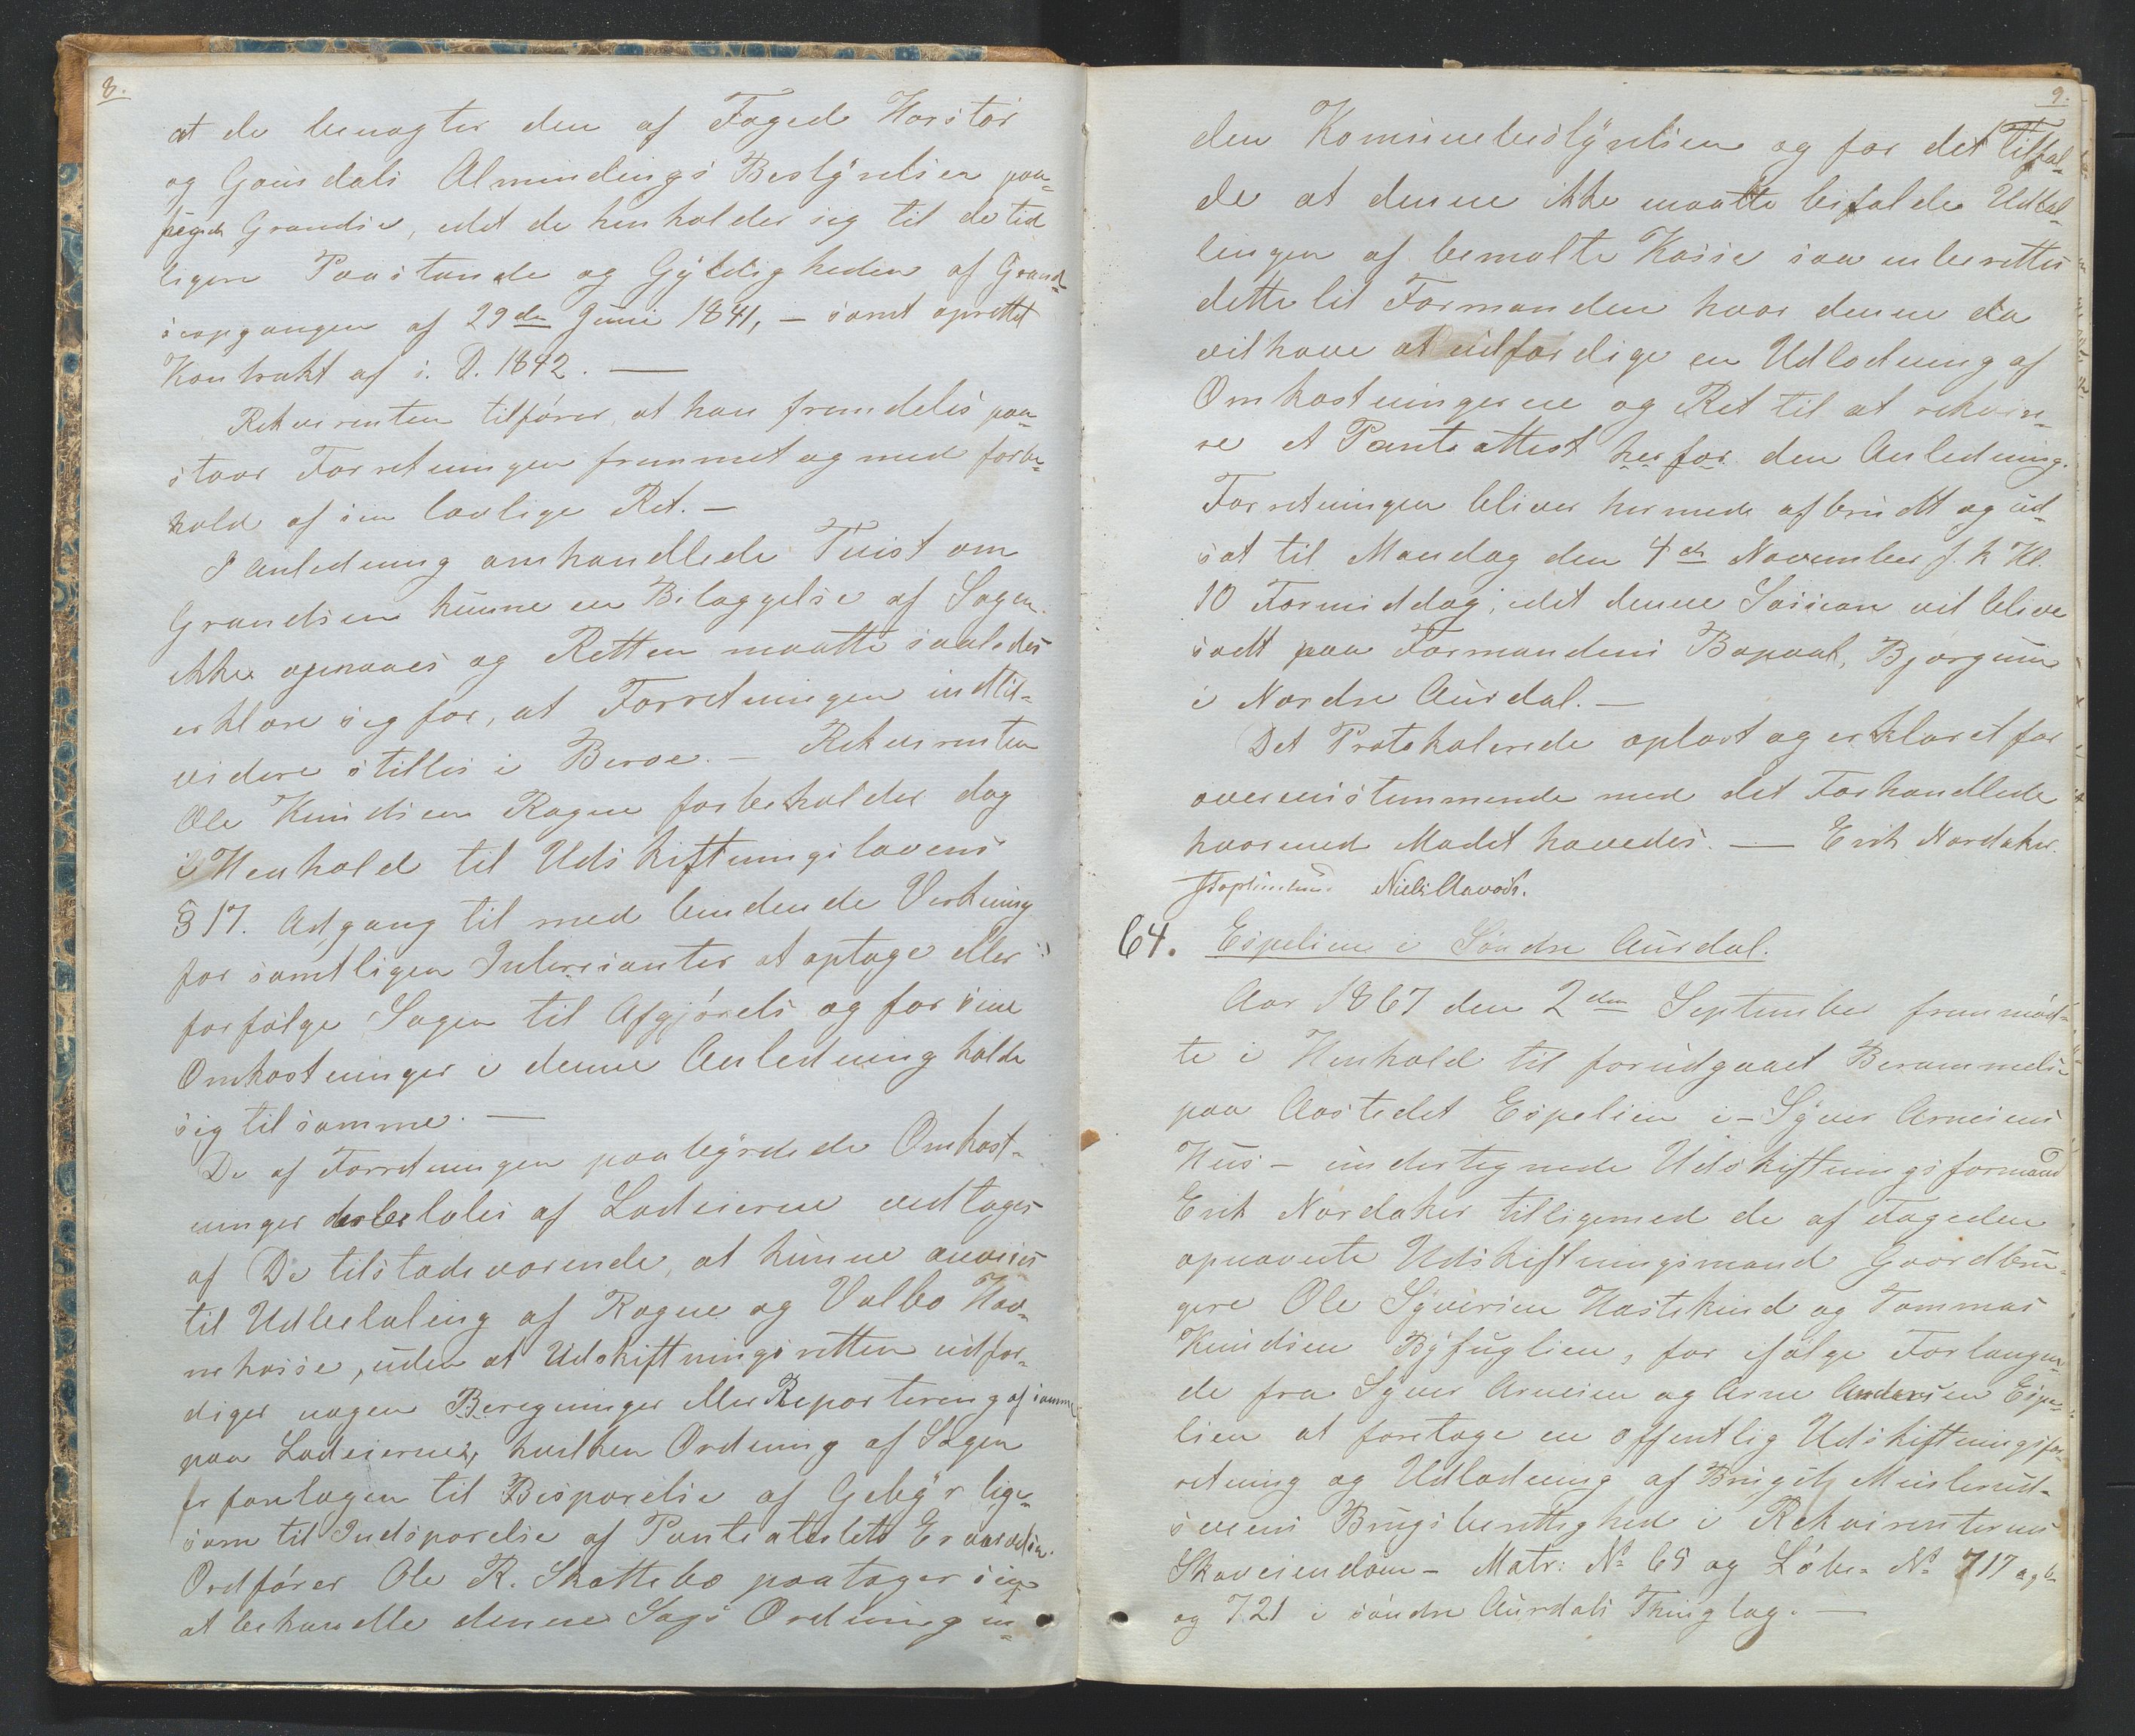 8.
at de benægter den af Foged Harstør
og Gausdals Almindings Bestÿrelsen paa-
Grændse, idet de henholder sig til de tid
ligere Paastande og Gÿldigheden af Grænd
seopgangen af 29de Juni 1841, – samt oprettet
Kontrakt af i. D. 1842. —
Rekvirenten tilfører, at han fremdeles paa-
staar Forretningen fremmet og med forbe-
hold af sin lovlige Ret. –
I Anledning omhandlede Tvist om
Grændsen kunne en Bilæggelse af Sagen
ikke opnaaes og Retten maatte saaledes
erklære sig for, at Forretningen indtil-
videre stilles i Beroe. – Rekvirenten
Ole Knudsen Rogne forbeholder dog
i Henhold til Udskiftningslovens
§ 17. Adgang til med bindende Virkning
for samtligen Interesenter at optage eller
forfølge Sagen til Afgjørels og for sine
Omkostninger i denne Anledning holde
sig til samme. —
De af Forretningen paabÿrdede Omkost-
ninger der betales af Lodeierne vedtages
af De tilstædeværende, at kunne anvises
til Udbetaling af Rogne og Valbo Hav-
nekasse, uden at Udskiftningsretten udfær-
diger nogen Beregninger eller Repartering af samme
paa Lodeierne, hvilken Ordning af Sagen
er foretagen til Besparelse af Gebÿr lige-
som til Indsparelse af Panteatestets Erværdelse.
Ordfører Ole R. Skattebo paatager sig
at behandle denne Sags Ordning in-
9.
den Komunebestÿrelsen og for det Tilfæl-
de at denne ikke maatte bifalde Udtæl-
lingen af bemeldte Kasse saa inberettes
dette til Formanden hvor denne da
vil have at udfærdige en Udlodning af
Omkostningerne og Ret til at rekvire-
re et Pantsattest herfor den Anledning.
Forretningen bliver hermed afbrudt og ud-
sat til Mandag den 4de November f. k Kl.
10 Formiddag, idet denne Session vil blive
sadt paa Formandens Bopæl, Bjørgum
i Nordre Aurdal. —
Det Protokolerede oplæst og erklæret for
overensstemmende med det Forhandlede
hvormed Mødet hævedes. — Erik Nordaker.
Niels Aavoll.
64. Espelien i Søndre Aurdal.
Aar 1867 den 2den September fremmød-
te i Henhold til forudgaaet Berammelse
paa Aastedet Espelien i – Sÿver Arnesens
Hus – undertegnede Udskiftningsformand
Erik Nordaker tilligemed de af Fogeden
opnævnte Udskiftningsmænd Gaardbru-
gere Ole Sÿversen Hastekind og Tommas
Knudsen Bÿfuglien, for ifølge Forlangen-
de fra Sÿver Arnesen og Arne Andersen Espe-
lien at foretage en offentlig Udskiftningsfor-
retning og Udlodning af Brugets Mislerud-
svens Brugsberettighed i Rekvirenternes
Skoveiendom – Matr: No 65 og Løbe No 717 a, b
og 721 i søndre Aurdals Thinglag. —